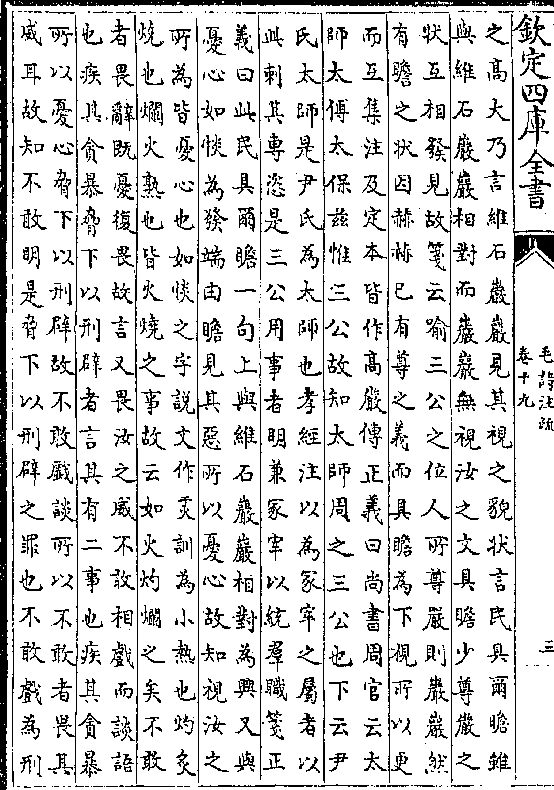 欽定四庫全書
毛詩注疏
卷十九
三
之高大乃言維石巖巖見其視之貌狀言民具爾瞻雖
與維石巖巖相對而巖巖無視汝之文具瞻少尊嚴之
狀互相發見故箋云喻三公之位人所尊嚴則巖巖然
有瞻之狀因赫赫已有尊之義而具瞻為下俔所以更
而互集注及定本皆作高嚴傳正義曰尚書周官云太
師太傅太保兹惟三公故知太師周之三公也下云尹
氏太師是尹氏為太師也孝經注以為冢宰之屬者以
此刺其専恣是三公用事者明兼冢宰以統羣職箋正
義曰此民具爾瞻一句上與維石巖巖相對為興又與
憂心如惔為發端由瞻見其惡所以憂心故知視汝之
所為皆憂心也如惔之字說文作㶣訓為小熱也灼炙
燒也爓火熟也皆火燒之事故云如火灼爓之矣不敢
者畏辭既憂復畏故言又畏汝之威不敢相戲而談語
也疾其貪暴脅下以刑辟者言其有二事也疾其貪暴
所以憂心脅下以刑辟故不敢戲談所以不敢者畏其
威耳故知不敢明是脅下以刑辟之罪也不敢戲為刑